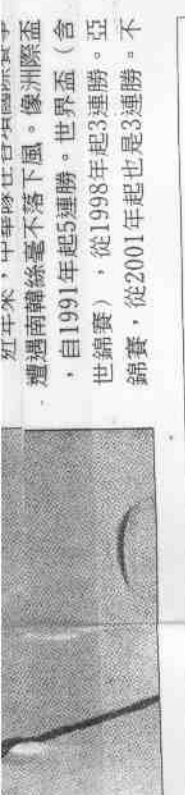 近年來，中華隊在各項國際賽事
遭遇南韓絲毫不落下風。像洲際盃
，自1991年起5連勝。世界盃（含
世錦賽），從1998年起3連勝。亞
錦賽，從2001年起也是3連勝。不